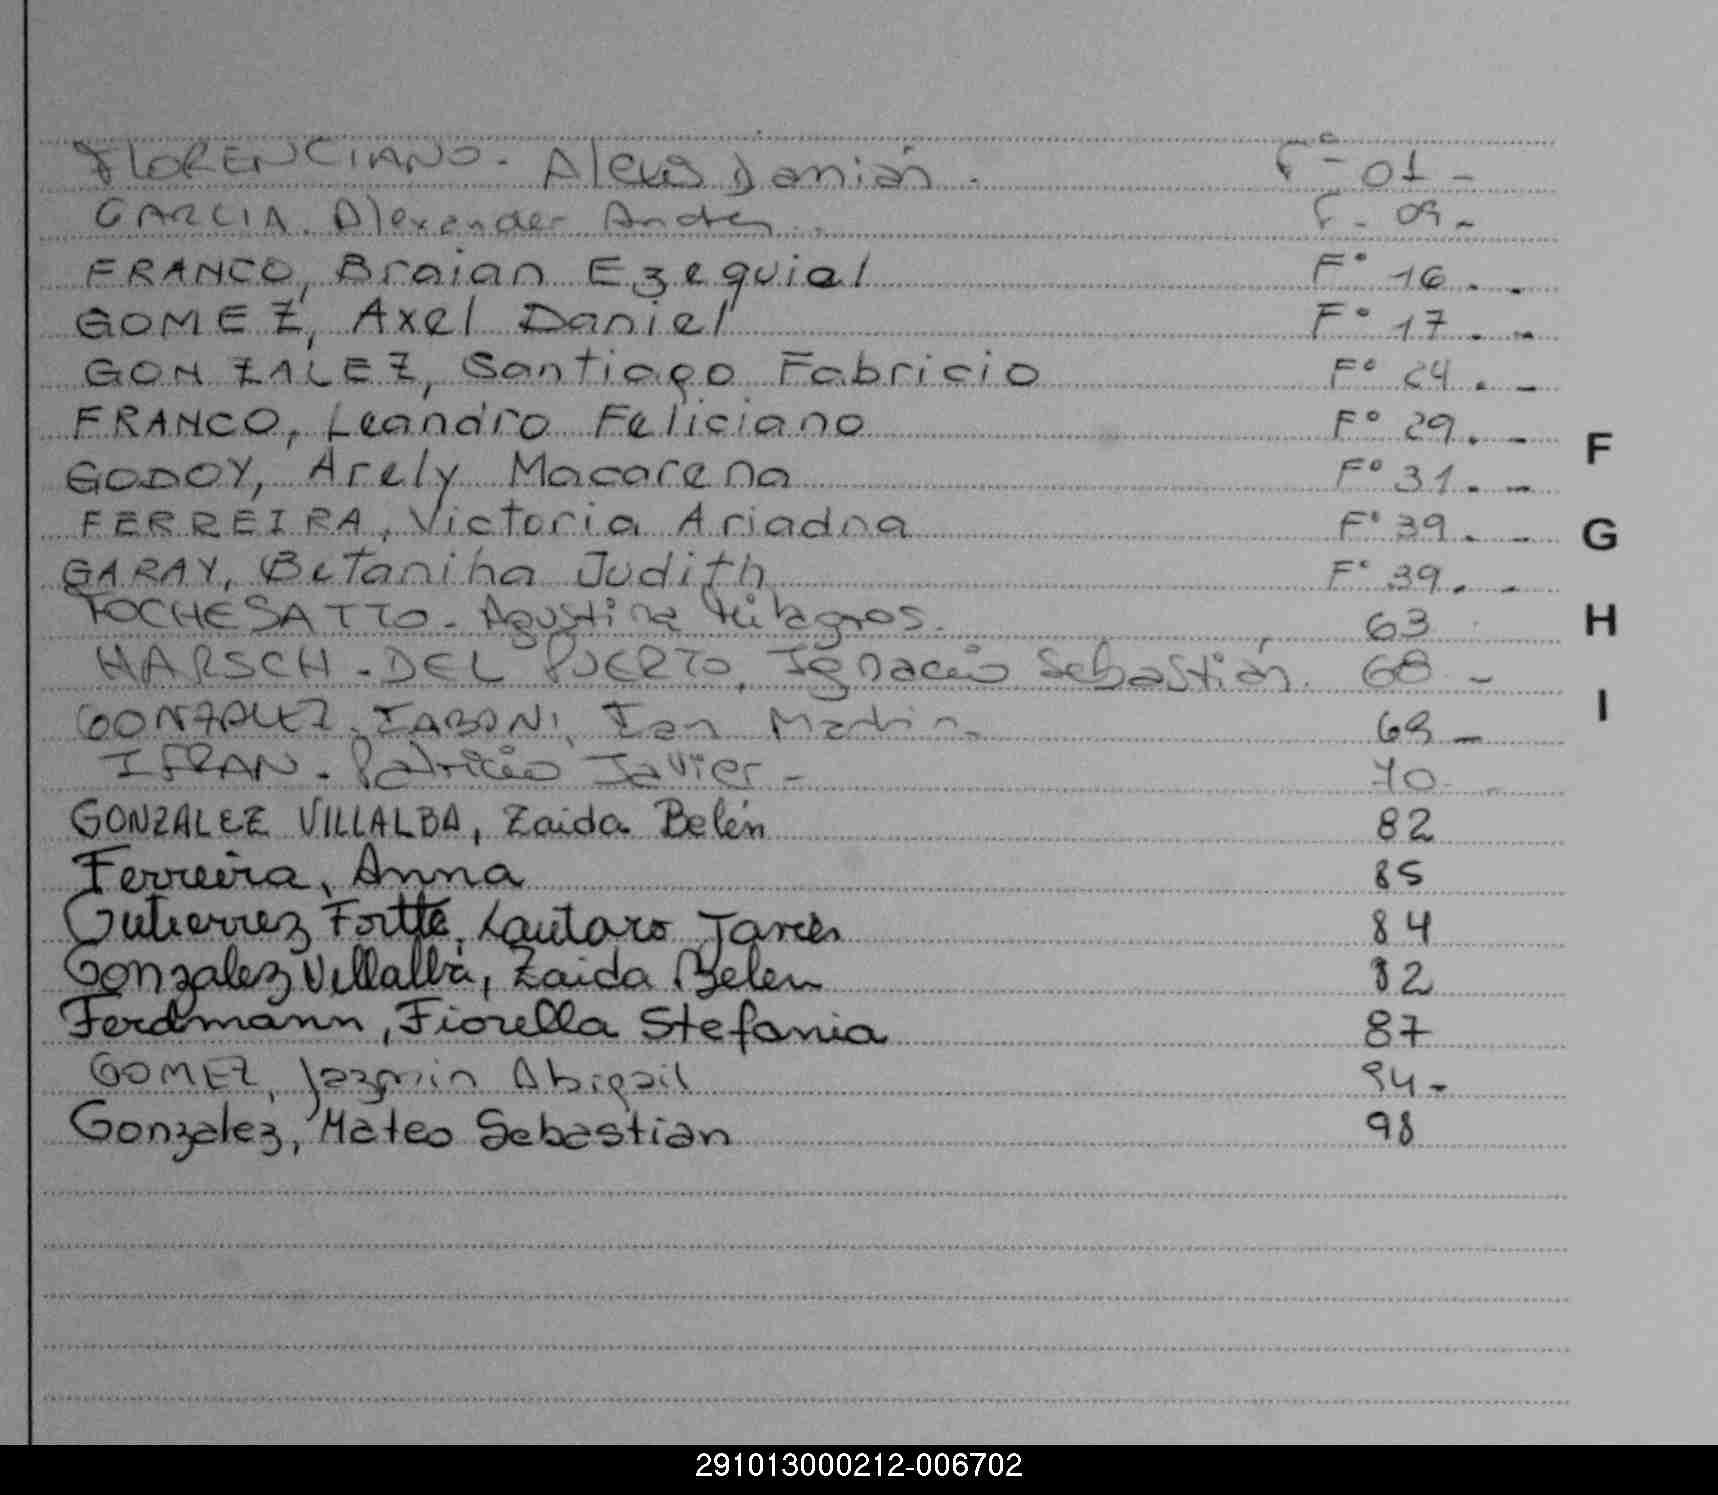 FLORENCIANO. Alexis Damián. F° 01 -
GARCIA. Alexander Andres.. F. 09 -
FRANCO, Braian Ezequial F° 16. -
GOMEZ, Axel Daniel F° 17. -
GONZALEZ, Santiago Fabricio F° 24. -
FRANCO, Leandro Feliciano F° 29. -
GODOY, Arely Macarena F° 31. -
FERREIRA, Victoria Ariadna F° 39. -
GARAY, Betaniha Judith F° 39. -
FOCHESATTO. Agustina Milagros. 63
HARSCH. DEL PUERTO, Ignacio Sebastián. 68 -
GONZALEZ. Ian Martin. 69 -
IFRAN. Patricio Javier - 70 -
GONZALEZ VILLALBA, Zaida Belén 82
Ferreira, Anna 85
Gutierrez Fortte, Lautaro 84
Gonzalez Villalba, Zaida Belen 82
Ferdmann, Fiorella Stefania 87
GOMEZ, Jazmin Abigail 94 -
Gonzalez, Mateo Sebastian 98
F
G
H
I
291013000212-006702